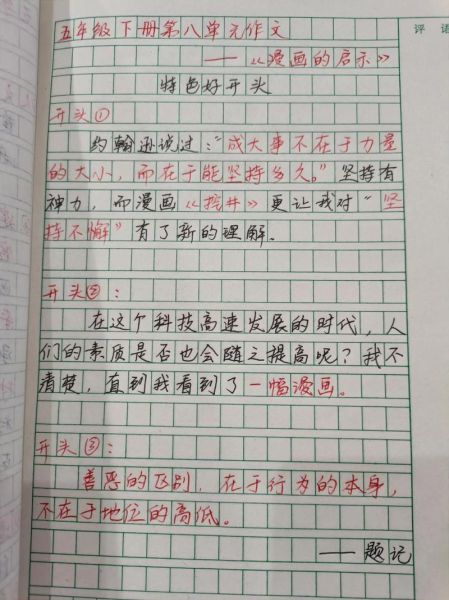 评语
五年级下册第八单元作文
——《漫画的启示》
特色好开头
开头①
约翰逊说过:“成大事不在于力量
的大小,而在于能坚持多久。”坚持有
神力,而漫画《挖井》更让我对“坚
持不懈”有了新的理解。
开头②:
在这个科技高速发展的时代,人
们的素质是否也会随之提高呢?我不
清楚,直到我看到了一幅漫画。
开头③:
善恶的区别,在于行为的本身,
不在于地位的高低。
——题记